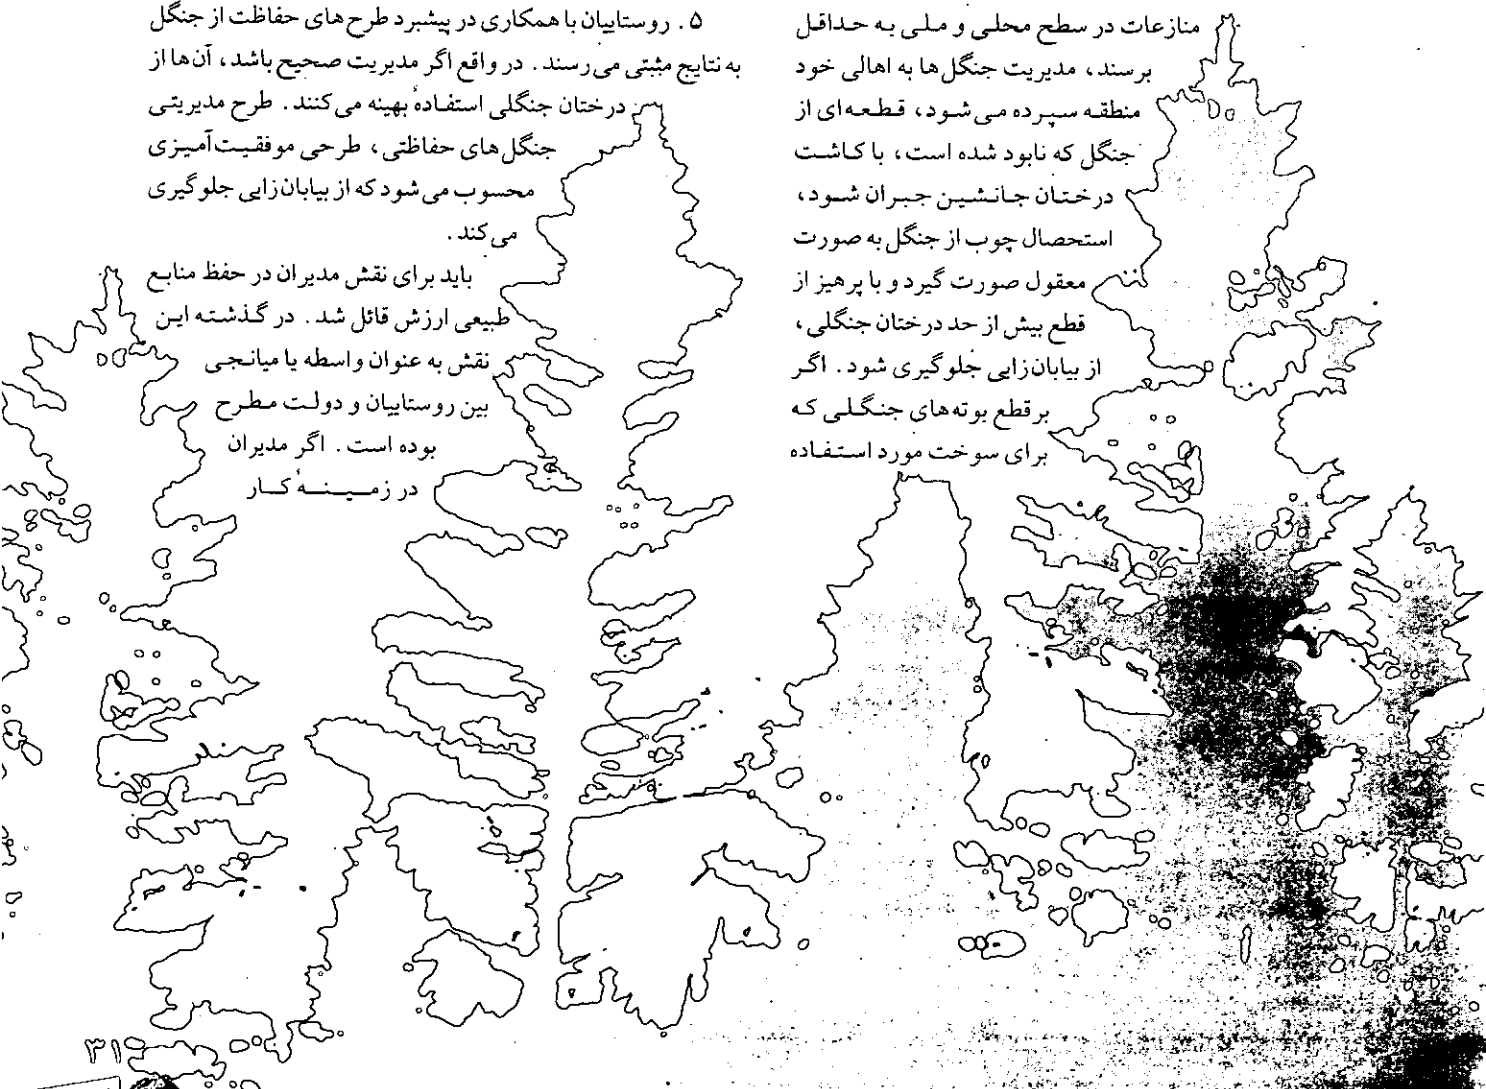 منازعات در سطح محلی و ملی به حداقل
برسند، مدیریت جنگل‌ها به اهالی خود
منطقه سپرده می‌شود، قطعه‌ای از
جنگل که نابود شده است، با کاشت
درختان جانشین جبران شود،
استحصال چوب از جنگل به صورت
معقول صورت گیرد و با پرهیز از
قطع بیش از حد درختان جنگلی،
از بیابان‌زایی جلوگیری شود. اگر
بر قطع بوته‌های جنگلی که
برای سوخت مورد استفاده
۵. روستاییان با همکاری در پیشبرد طرح‌های حفاظت از جنگل
به نتایج مثبتی می‌رسند. در واقع اگر مدیریت صحیح باشد، آن‌ها از
درختان جنگلی استفادهٔ بهینه می‌کنند. طرح مدیریتی
جنگل‌های حفاظتی، طرحی موفقیت‌آمیزی
محسوب می‌شود که از بیابان‌زایی جلوگیری
می‌کند.
باید برای نقش مدیران در حفظ منابع
طبیعی ارزش قائل شد. در گذشته این
نقش به عنوان واسطه یا میانجی
بین روستاییان و دولت مطرح
بوده است. اگر مدیران
در زمینهٔ کار
۳۱